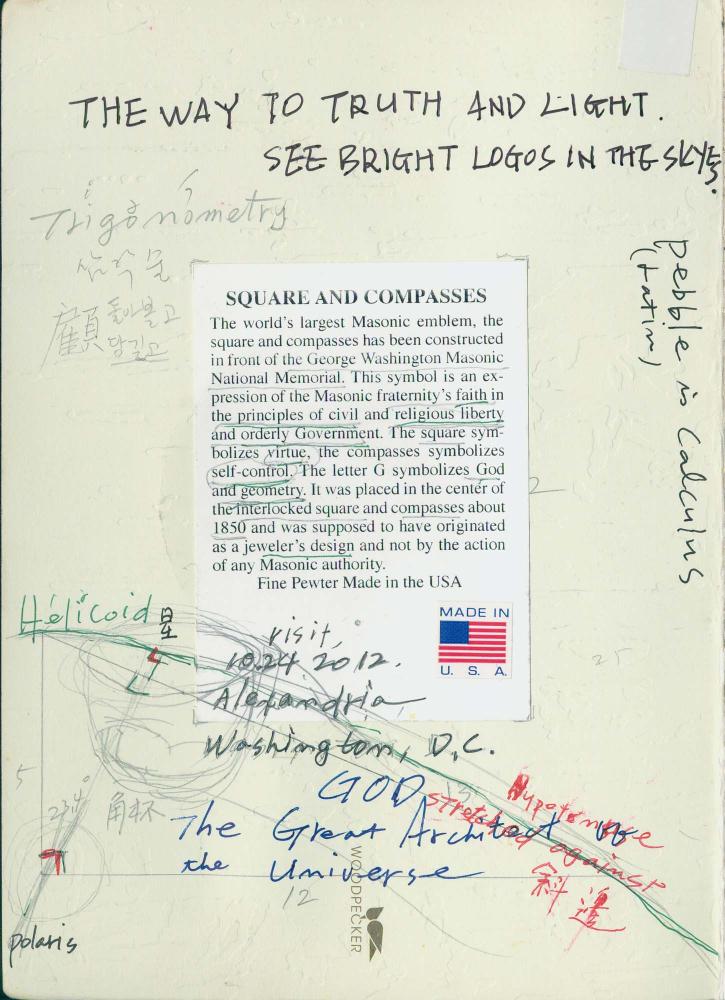 THE WAY TO TRUTH AND LIGHT.
SEE BRIGHT LOGOS IN THE SKYE.
Trigonometry
삼각물
顧 돌아볼고
당길고
pebble is Calculus
(Latin)
SQUARE AND COMPASSES
The world's largest Masonic emblem, the
square and compasses has been constructed
in front of the George Washington Masonic
National Memorial. This symbol is an ex-
pression of the Masonic fraternity's faith in
the principles of civil and religious liberty
and orderly Government. The square sym-
bolizes virtue, the compasses symbolizes
self-control. The letter G symbolizes God
and geometry. It was placed in the center of
the interlocked square and compasses about
1850 and was supposed to have originated
as a jeweler's design and not by the action
of any Masonic authority.
Fine Pewter Made in the USA
MADE IN
U. S. A.
Helicoid
visit,
10.24 2012.
Alexandria
Washington, D.C.
25
5
23.4°
角杯
13
GOD
The Great Architect of
the Universe
Hypotenuse
stretched against
斜邊
12
WOODPECKER
polaris